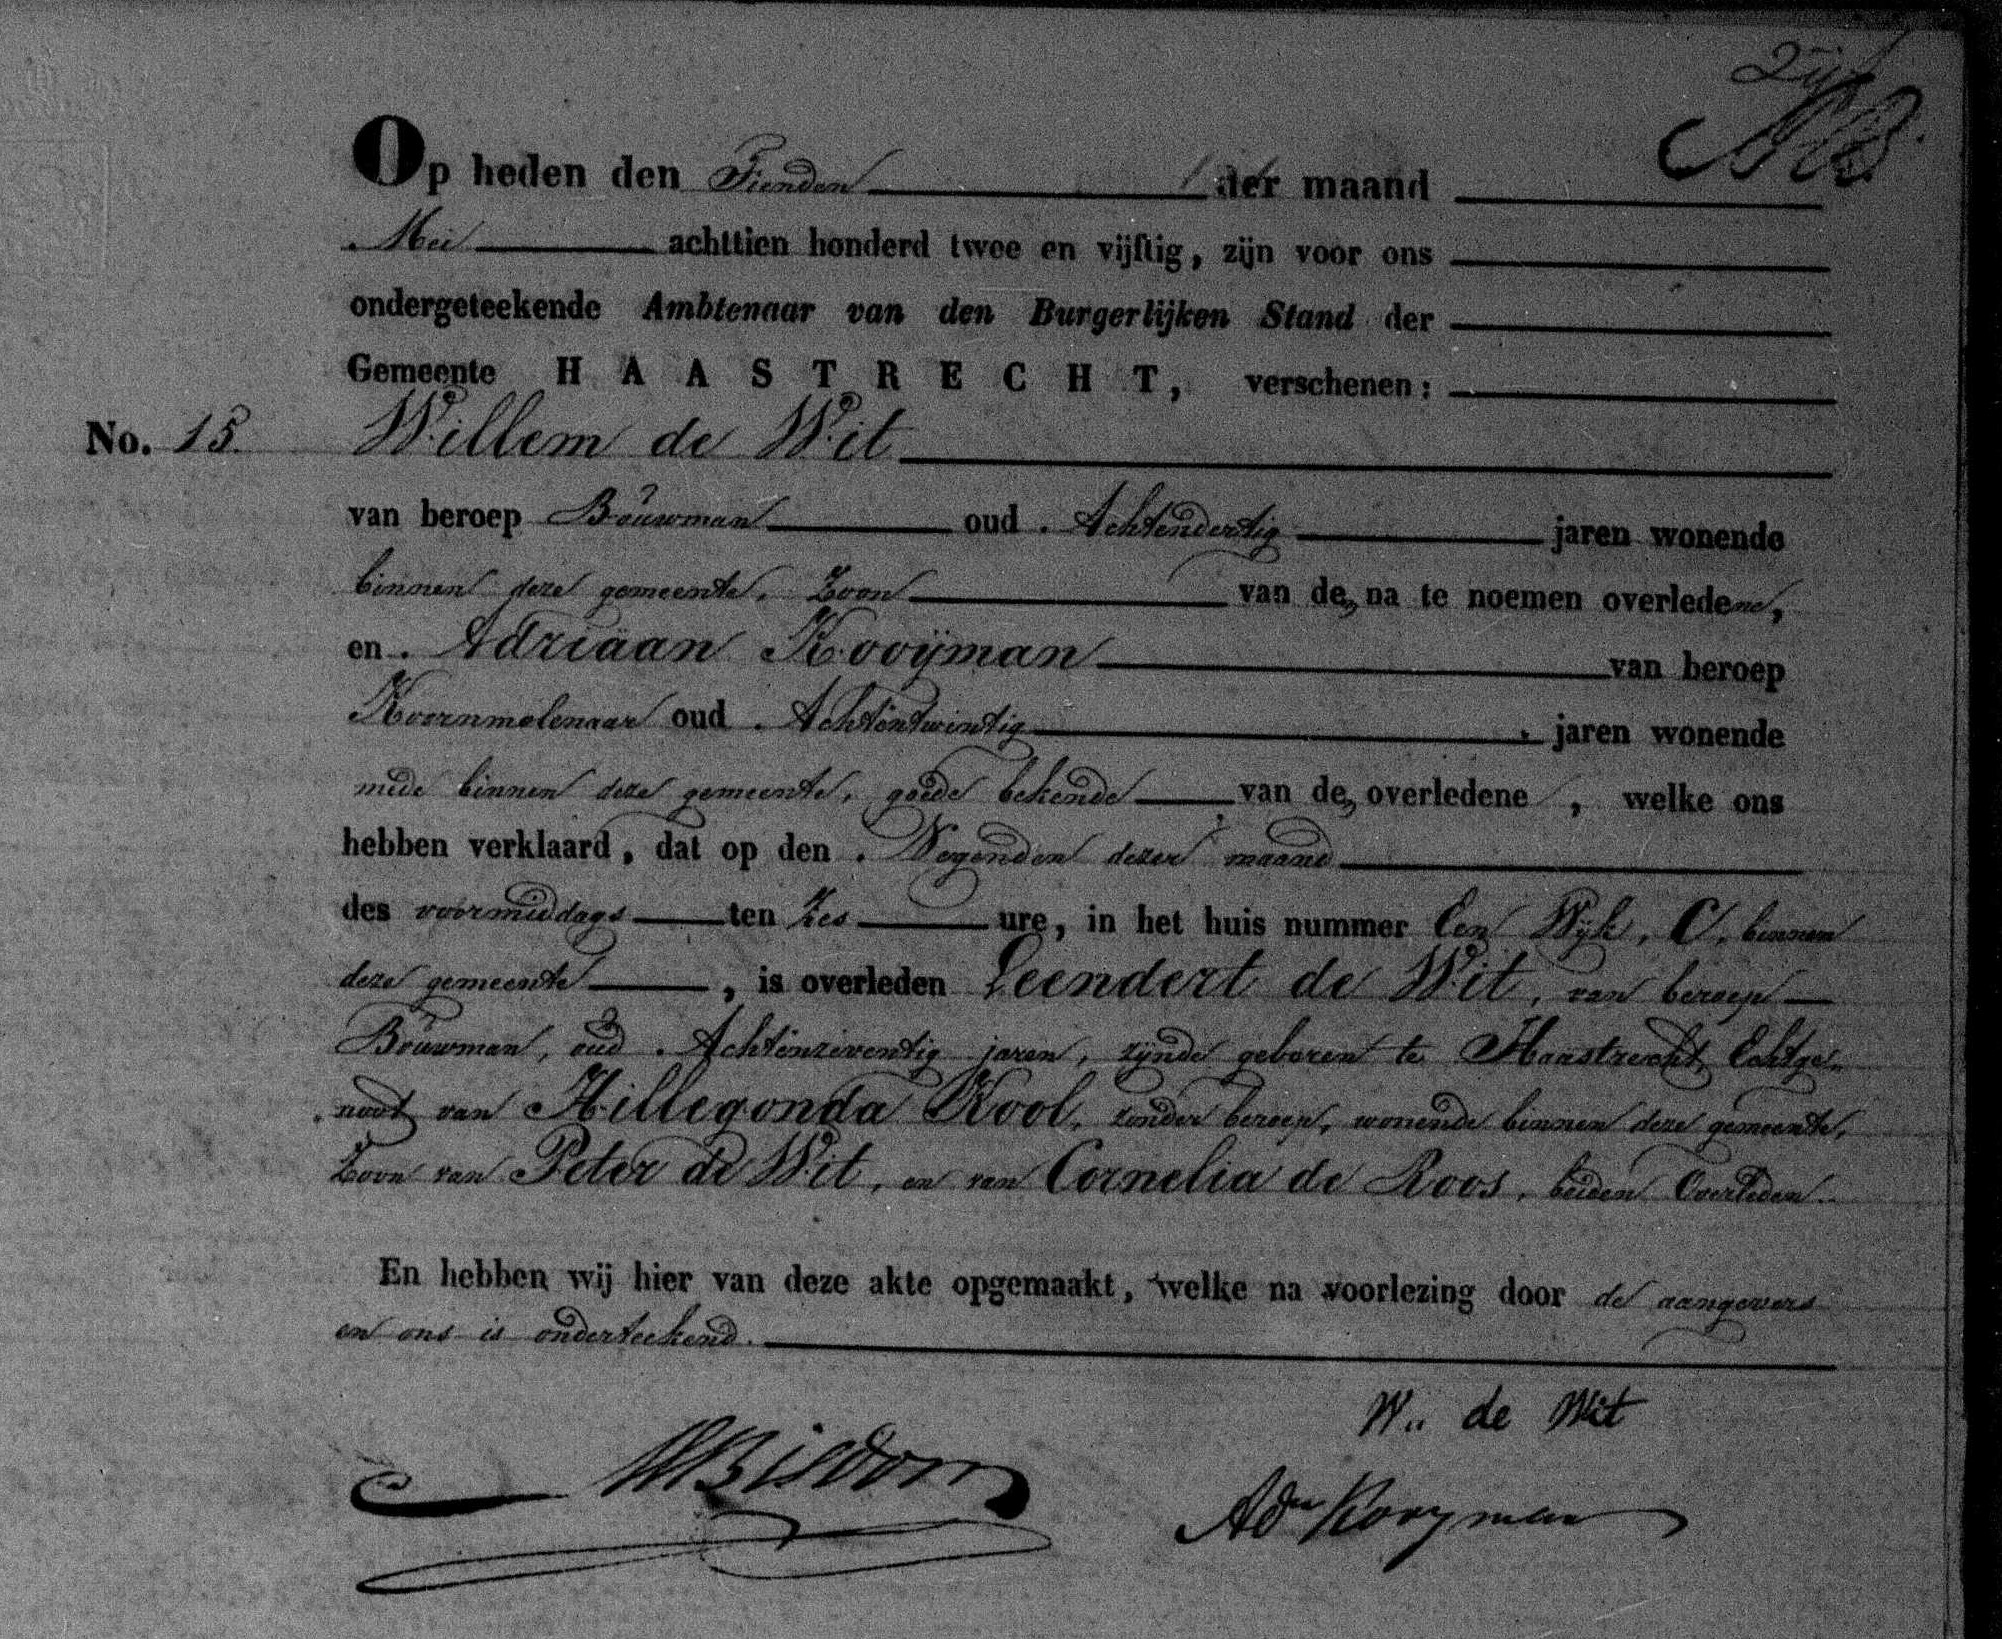 Op heden den Tienden der maand
Mei achttien honderd twee en vijftig, zijn voor ons
ondergeteekende Ambtenaar van den Burgerlijken Stand der
Gemeente HAASTRECHT, verschenen:
No. 15. Willem de Wit
van beroep Bouwman oud Achtendertig jaren wonende
binnen deze gemeente, Zoon van de, na te noemen overledene,
en Adriäan Kooÿman van beroep
Koornmolenaar oud Achtentwintig jaren wonende
mede binnen deze gemeente, goede bekende van de, overledene, welke ons
hebben verklaard, dat op den Negenden dezer maand
des voormiddags ten Zes ure, in het huis nummer Een Wijk, C, binnen
deze gemeente, is overleden Leendert de Wit, van beroep
Bouwman, oud Achtenzeventig jaren, zijnde geboren te Haastrecht, Echtge-
noot van Hillegonda Kool, zonder beroep, wonende binnen deze gemeente,
Zoon van Peter de Wit, en van Cornelia de Roos, beiden Overleden.
En hebben wij hier van deze akte opgemaakt, welke na voorlezing door de aangevers
en ons is onderteekend.
W. de Wit
Bisdom
Adn Kooyman